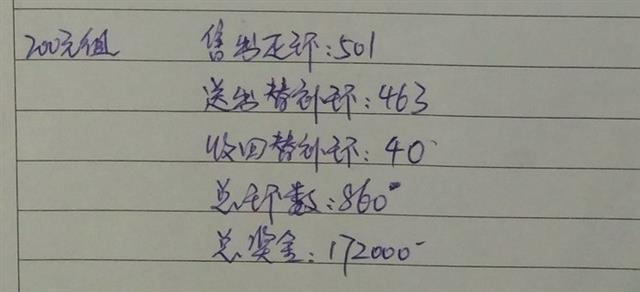 200元组 售出正环:501
送出替补环:463
收回替补环:40
总环数:860
总奖金:172000